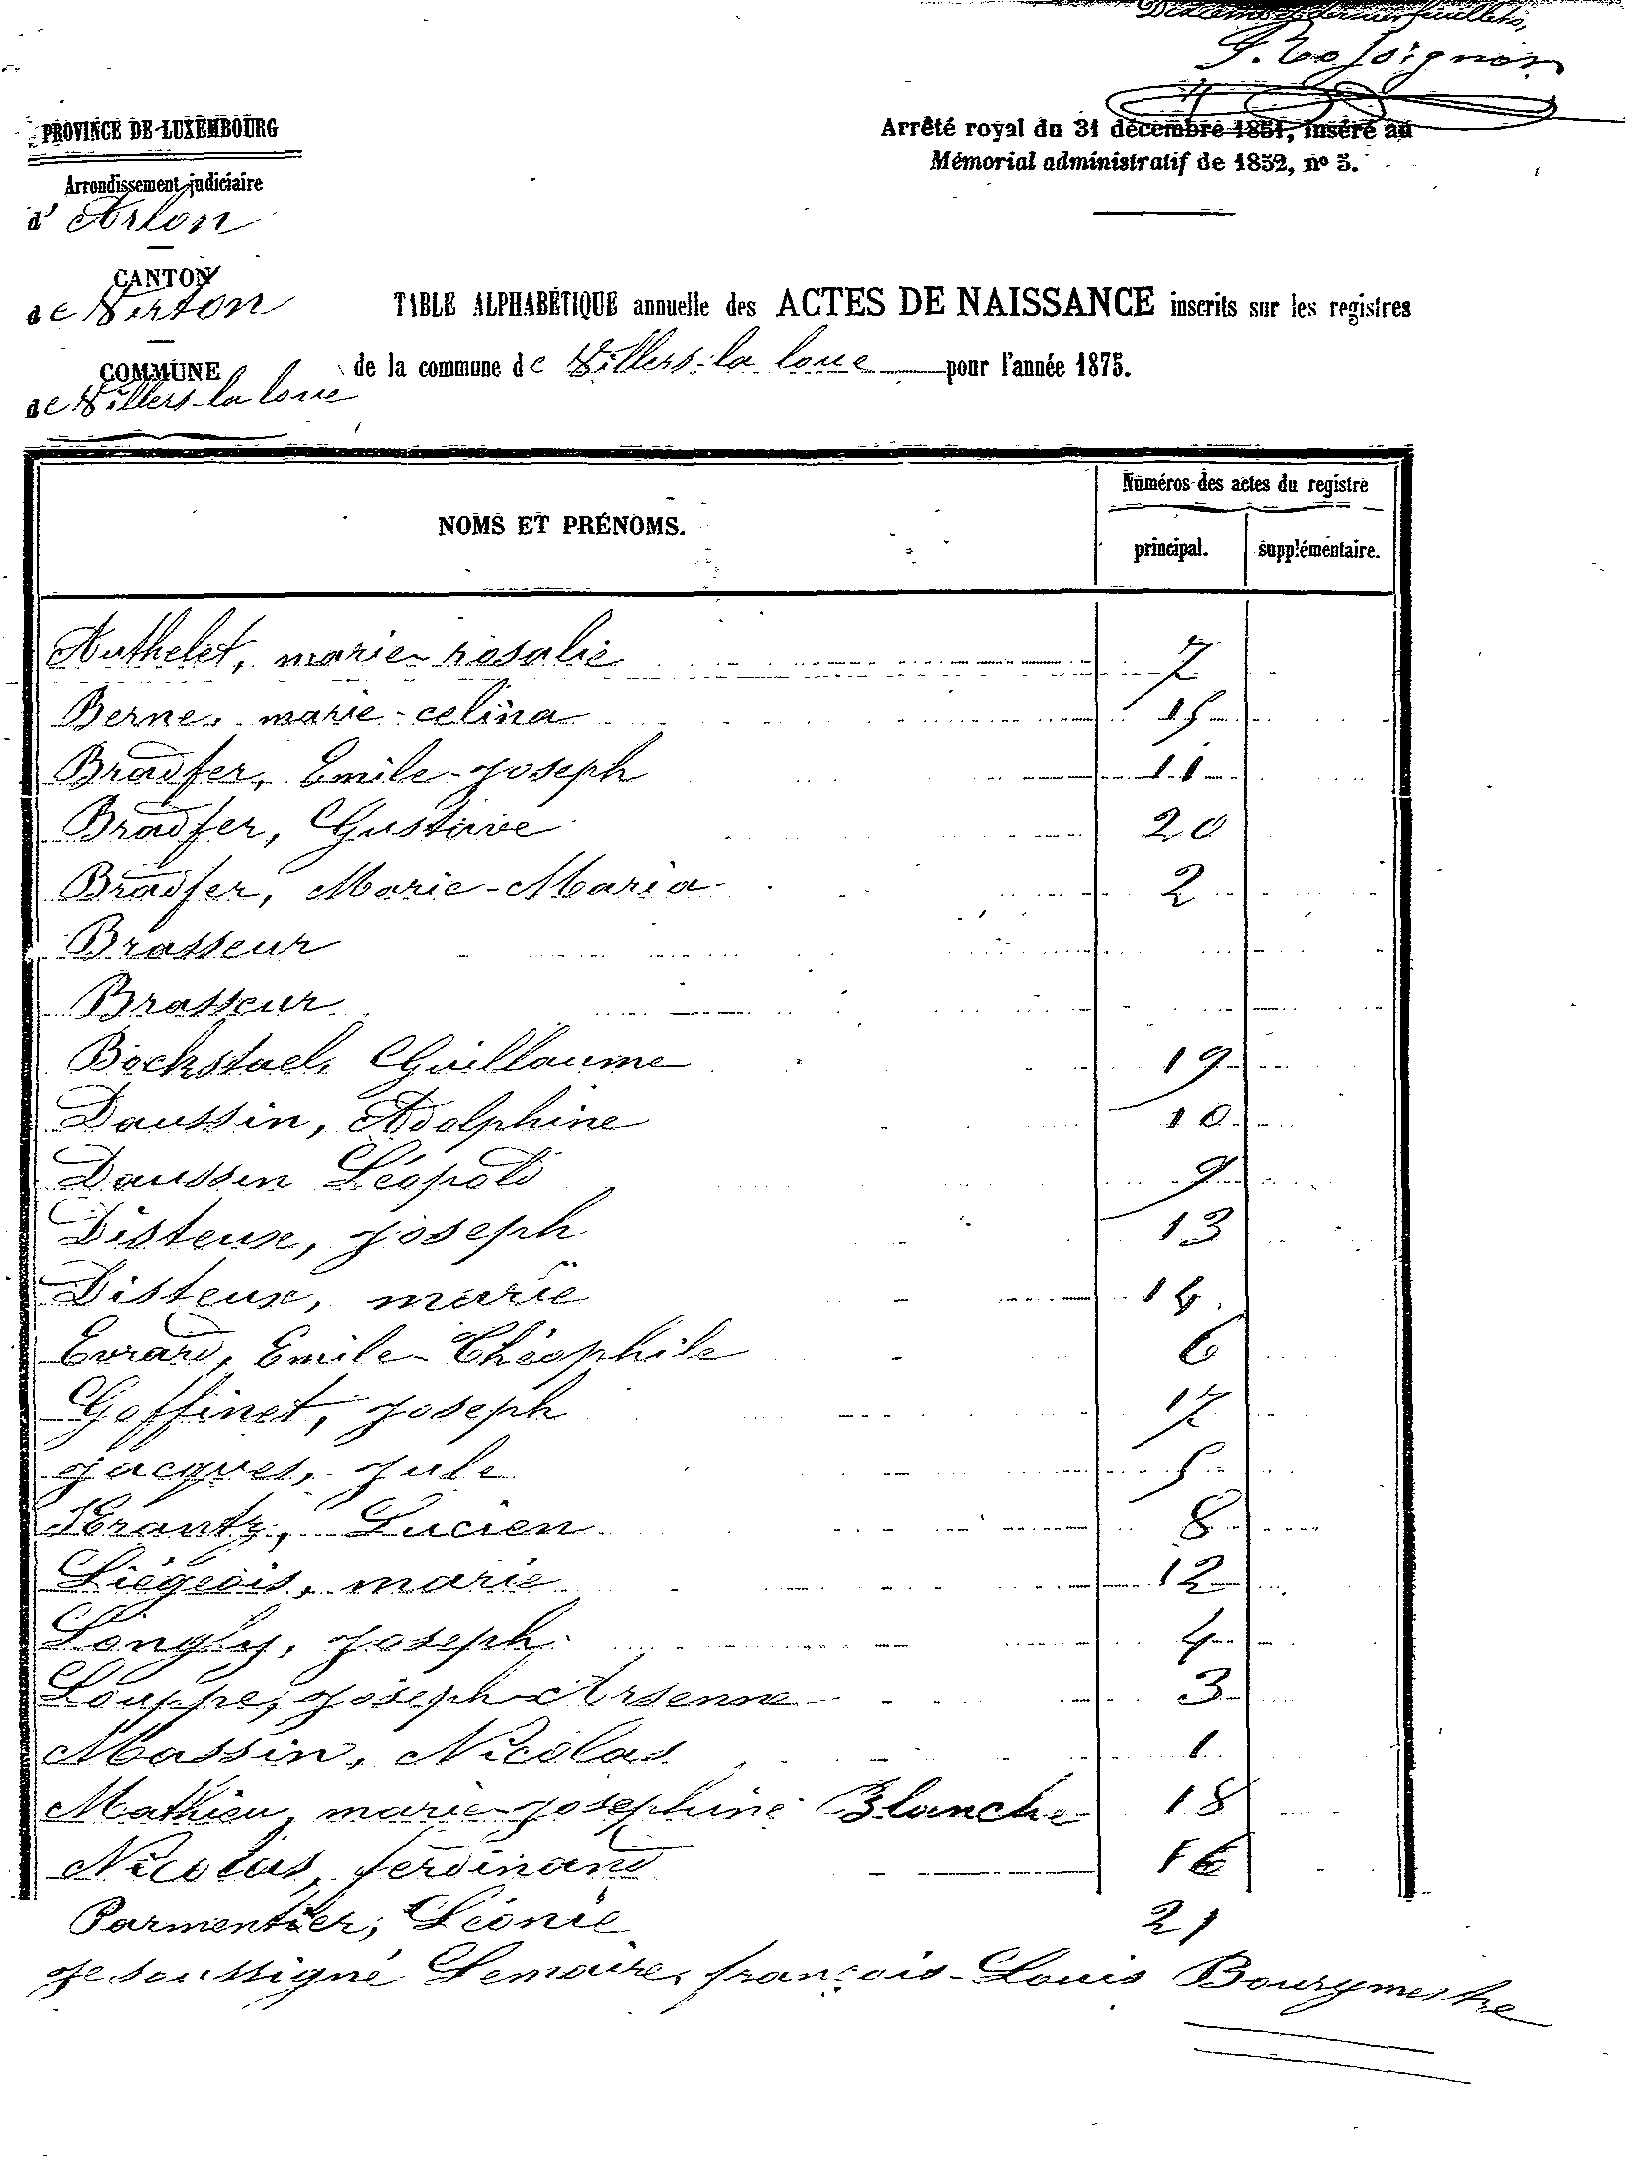 derniers feuillets,
PROVINCE DE LUXEMBOURG
Arrondissement judiciaire
d' Arlon
CANTON
de Virton
COMMUNE
de Villers-la loue
Arrêté royal du 31 décembre 1851, inséré au
Mémorial administratif de 1852, nº 5.
TABLE ALPHABÉTIQUE annuelle des ACTES DE NAISSANCE inscrits sur les registres
de la commune de Villers-la loue pour l'année 1875.
NOMS ET PRÉNOMS.
Numéros des actes du registre
principal. supplémentaire.
Authelet, marie-rosalie 7
Berne, marie-celina 15
Bradfer, Emile-Joseph 11
Bradfer, Gustave 20
Bradfer, Marie-Maria 2
Brasseur
Brasseur
Bockstael, Guillaume 19
Daussin, Adolphine 10
Daussin Léopold 9
Disteux, Joseph 13
Disteux, marie 14
Evrard, Emile-Théophile 6
Goffinet, Joseph 17
Jacques, Jule 5
Krantz, Lucien 8
Liégeois, marie 12
Longly, Joseph 4
Louppe, Joseph-Arsenne 3
Massin, Nicolas 1
Mathieu, marie-Josephine Blanche 18
Nicolas, ferdinand 16
Parmentier, Léonie 21
Je soussigné Lemaire, françois-Louis Bourgmestre